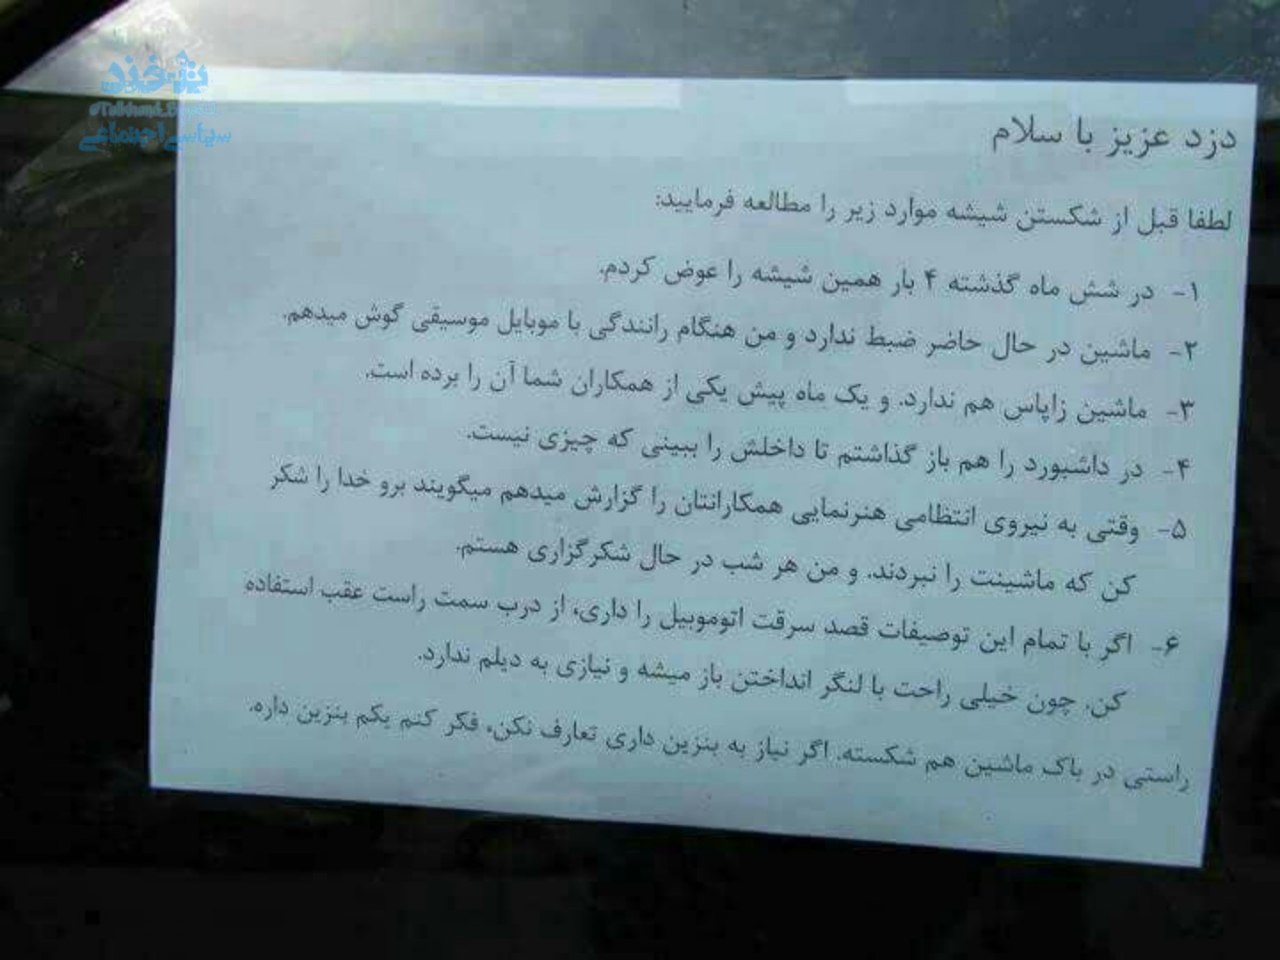 دزد عزیز با سلام
لطفا قبل از شکستن شیشه موارد زیر را مطالعه فرمایید:
۱- در شش ماه گذشته ۴ بار همین شیشه را عوض کردم.
۲- ماشین در حال حاضر ضبط ندارد و من هنگام رانندگی با موبایل موسیقی گوش میدهم.
۳- ماشین زاپاس هم ندارد. و یک ماه پیش یکی از همکاران شما آن را برده است.
۴- در داشبورد را هم باز گذاشتم تا داخلش را ببینی که چیزی نیست.
۵- وقتی به نیروی انتظامی هنرنمایی همکارانتان را گزارش میدهم میگویند برو خدا را شکر
کن که ماشینت را نبردند. و من هر شب در حال شکرگزاری هستم.
۶- اگر با تمام این توصیفات قصد سرقت اتوموبیل را داری، از درب سمت راست عقب استفاده
کن. چون خیلی راحت با لنگر انداختن باز میشه و نیازی به دیلم ندارد.
راستی در باک ماشین هم شکسته. اگر نیاز به بنزین داری تعارف نکن، فکر کنم یکم بنزین داره.
سیاسی اجتماعی